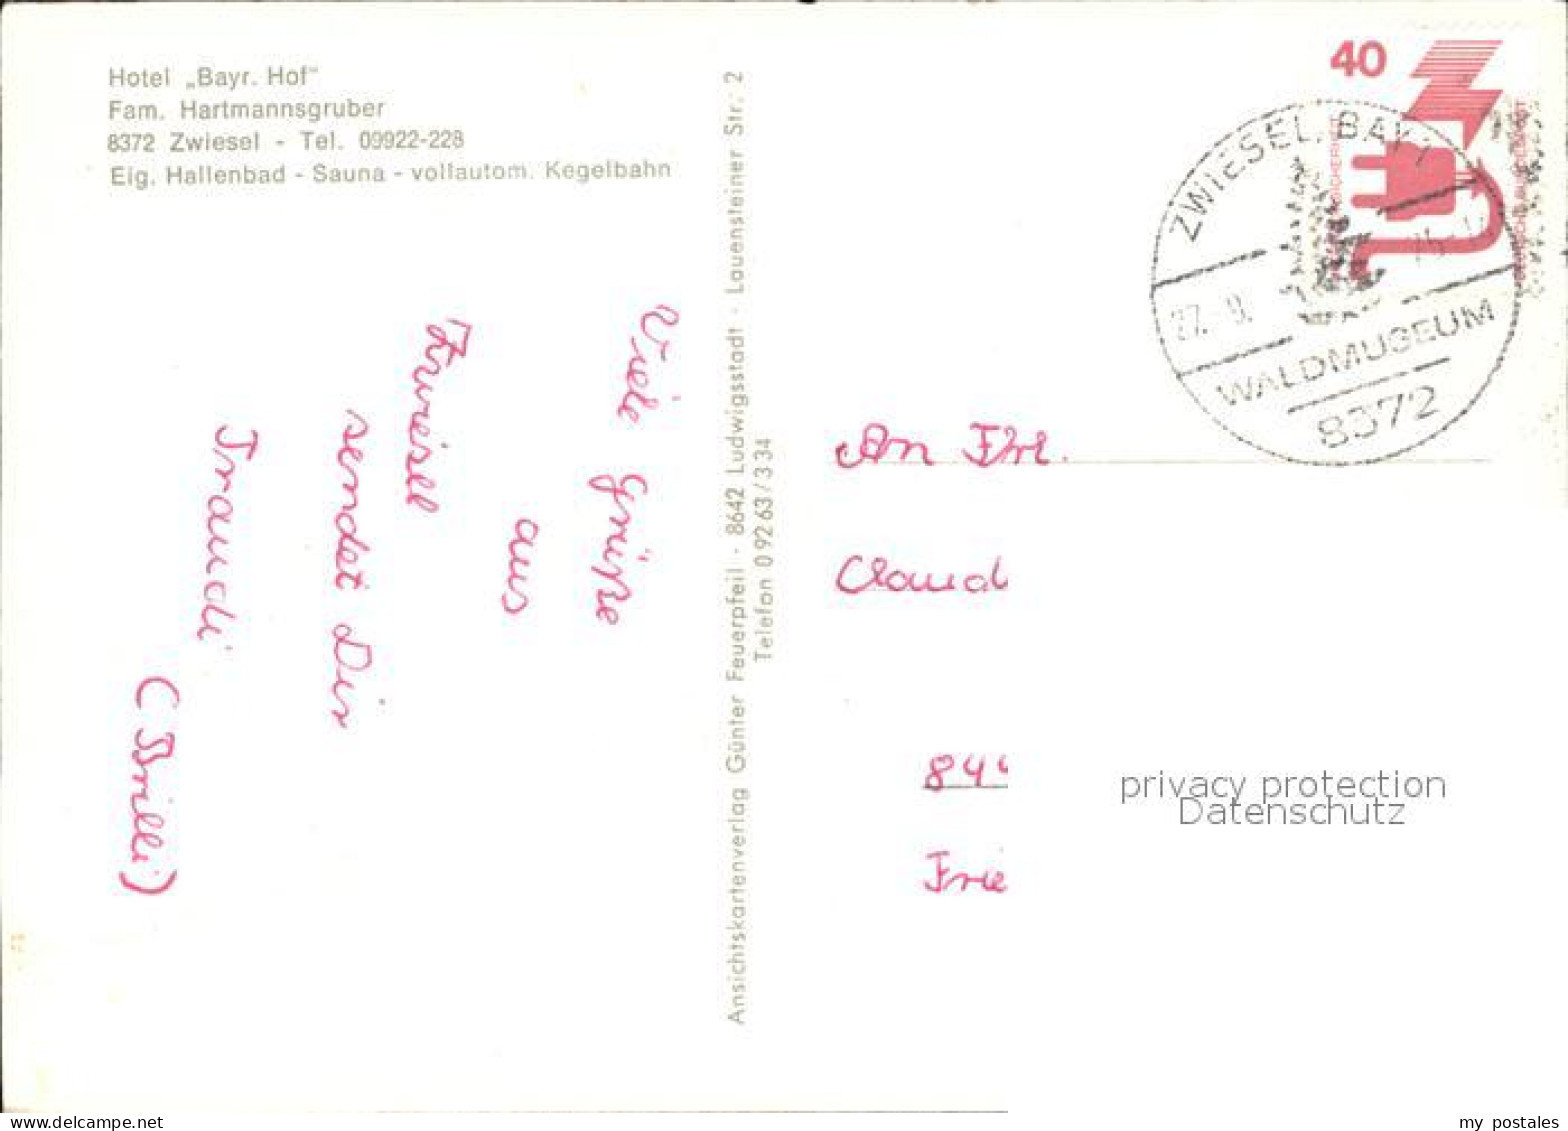 Hotel „Bayr. Hof"
Fam. Hartmannsgruber
8372 Zwiesel - Tel. 09922-228
Eig. Hallenbad - Sauna - vollautom. Kegelbahn
Viele Grüße
aus
Zwiesel
sendet Dir
Traudi
(Brilli)
Ansichtskartenverlag Günter Feuerpfeil · 8642 Ludwigsstadt · Lauensteiner Str. 2
Telefon 0 92 63 / 3 34
40
ZWIESEL, BAY 1
27.-9.
WALDMUSEUM
8372
An Frl.
Claud
844
Frie
privacy protection
Datenschutz
www.delcampe.net
my_postales